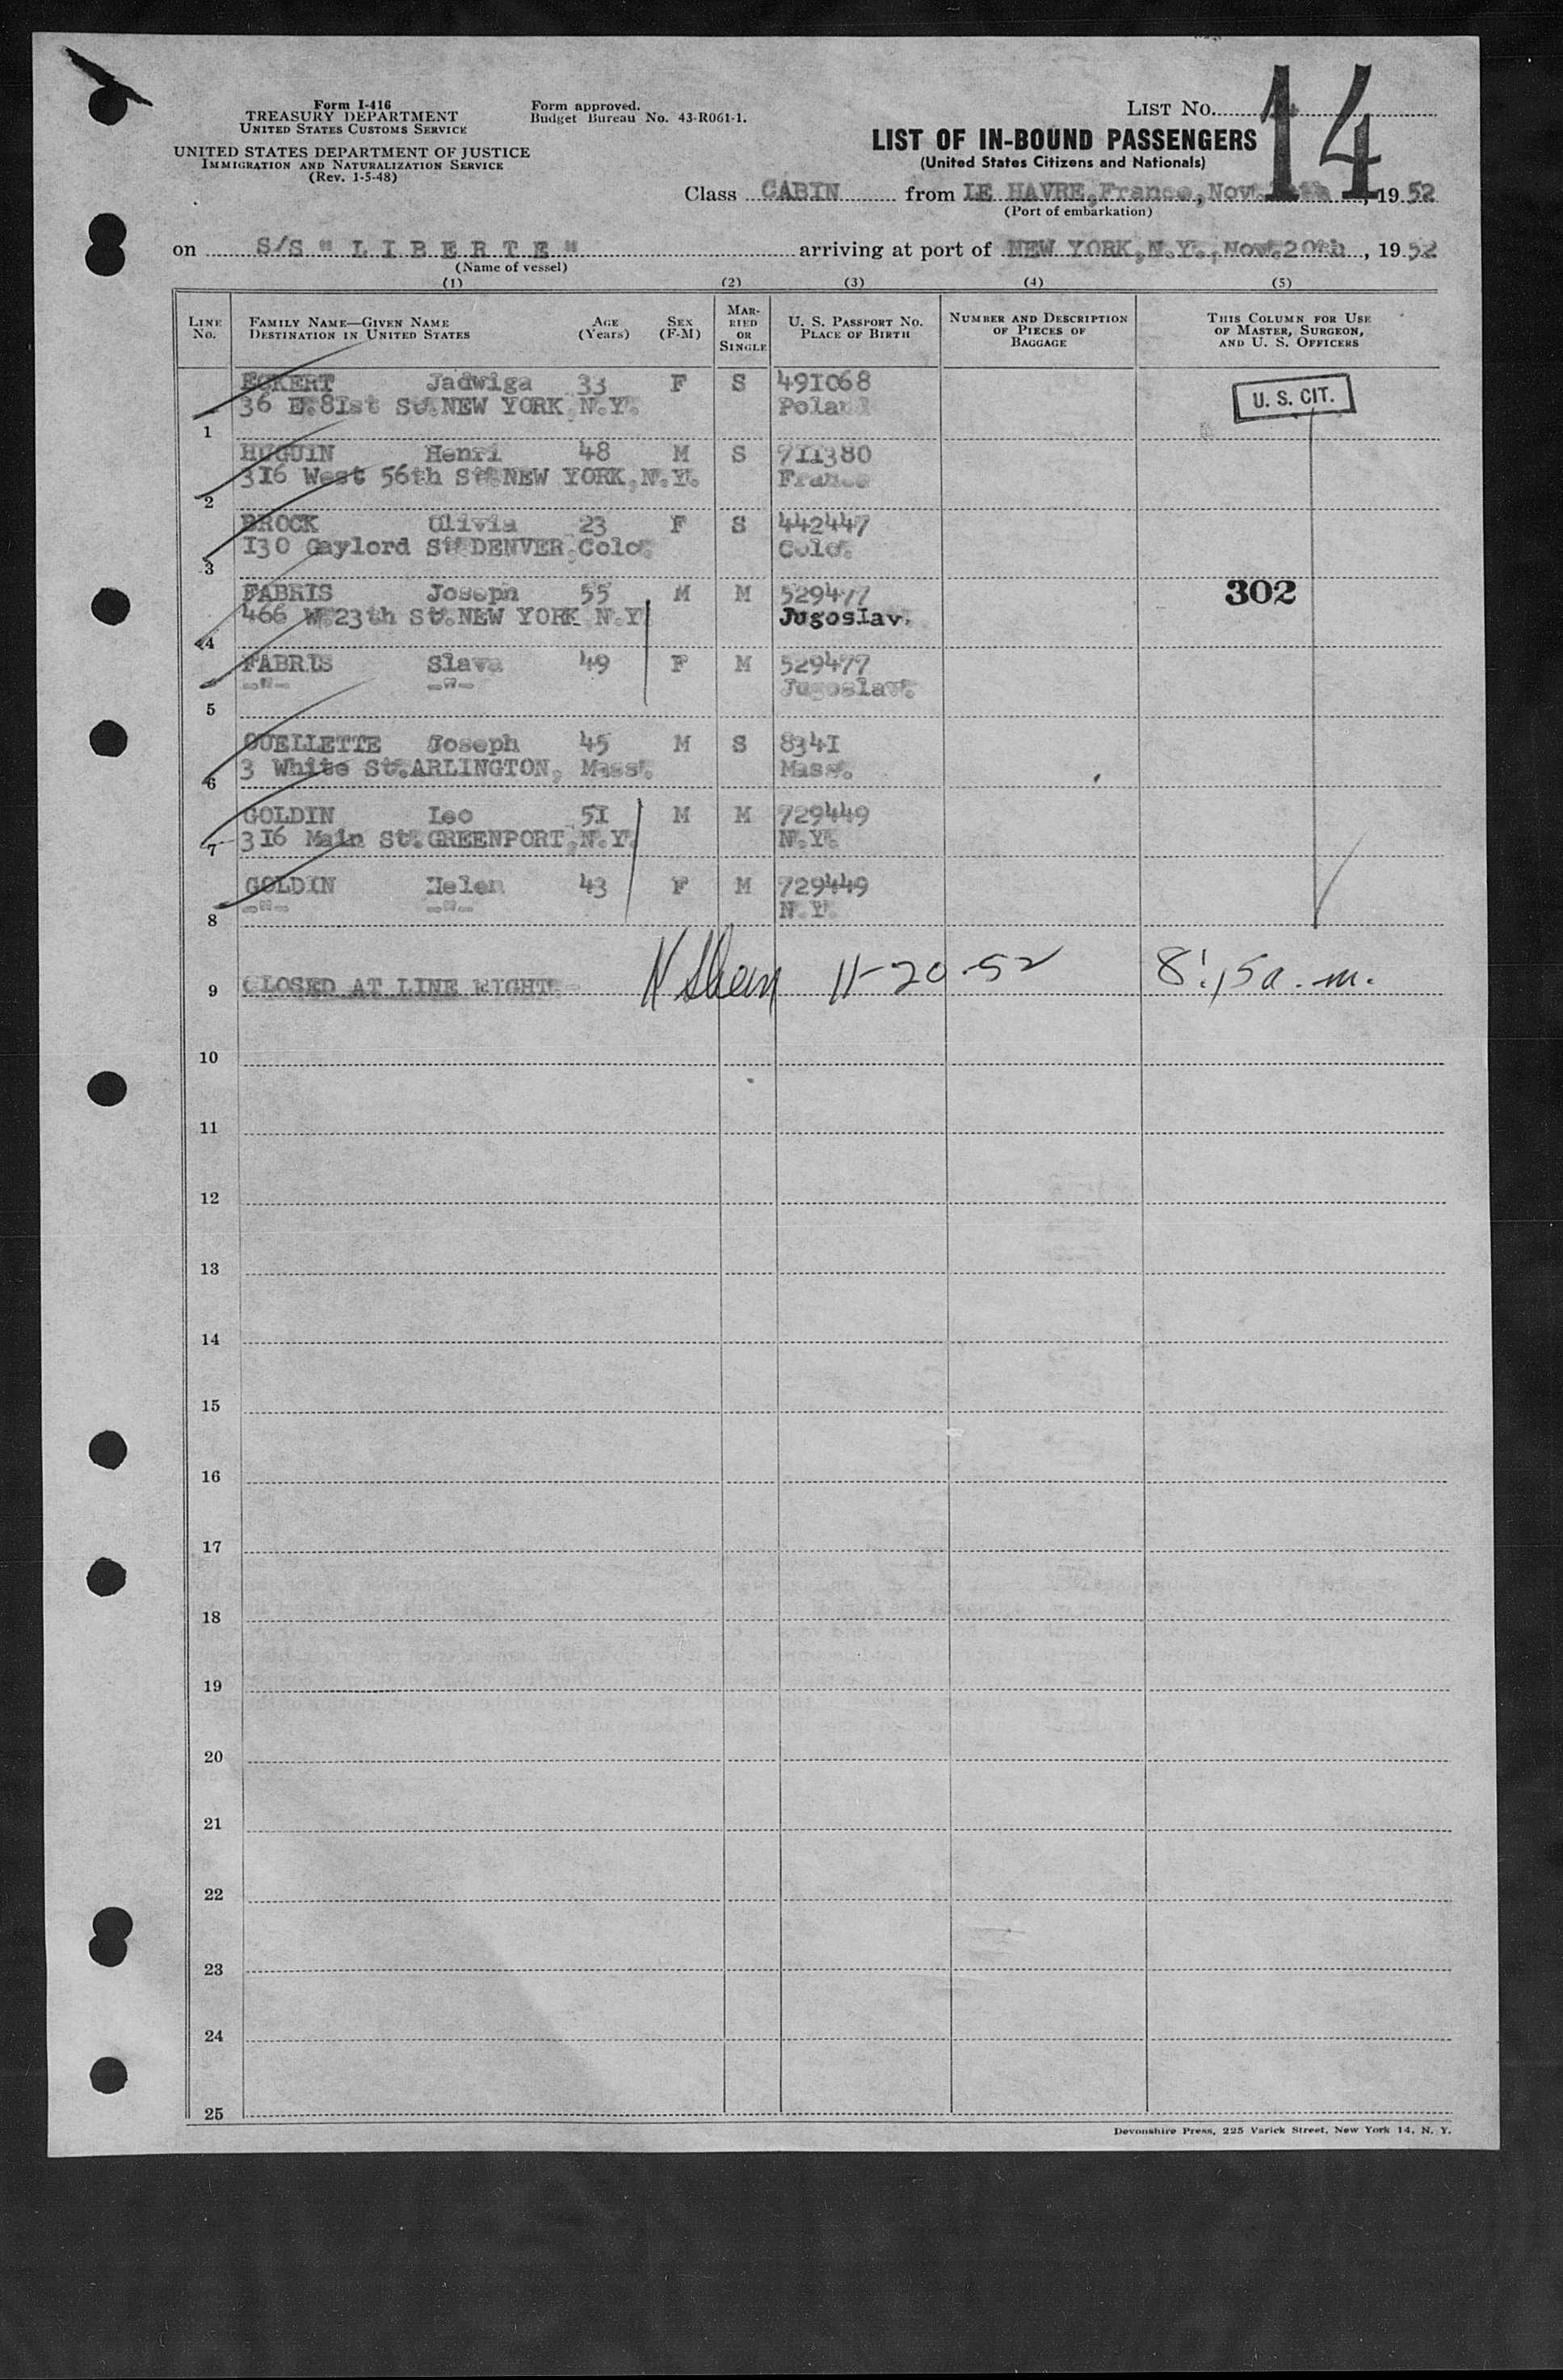 Form I-416
TREASURY DEPARTMENT
UNITED STATES CUSTOMS SERVICE
UNITED STATES DEPARTMENT OF JUSTICE
IMMIGRATION AND NATURALIZATION SERVICE
(Rev. 1-5-48)
Form approved.
Budget Bureau No. 43-R061-1.
LIST No. 14
LIST OF IN-BOUND PASSENGERS
(United States Citizens and Nationals)
Class CABIN from LE HAVRE, France, Nov. , 19 52
(Port of embarkation)
on S/S " L I B E R T E " arriving at port of NEW YORK, N.Y., Nov. 20th , 19 52
(Name of vessel)
(1) (2) (3) (4) (5)
LINE No. FAMILY NAME—GIVEN NAME DESTINATION IN UNITED STATES AGE (Years) SEX (F-M) MARRIED OR SINGLE U. S. PASSPORT No. PLACE OF BIRTH NUMBER AND DESCRIPTION OF PIECES OF BAGGAGE THIS COLUMN FOR USE OF MASTER, SURGEON, AND U. S. OFFICERS
ECKERT Jadwiga 33 F S 491068
1 36 E. 81st St. NEW YORK N.Y. Poland U. S. CIT.
HUGUIN Henri 48 M S 711380
2 316 West 56th St. NEW YORK, N.Y. France
BROCK Olivia 23 F S 442447
3 130 Gaylord St. DENVER, Colo. Colo.
FABRIS Joseph 55 M M 529477 302
4 466 W. 23th St. NEW YORK N.Y. Jugoslav.
FABRIS Slava 49 F M 529477
5 -"- -"- Jugoslav.
OUELLETTE Joseph 45 M S 8341
6 3 White St. ARLINGTON, Mass. Mass.
GOLDIN Leo 51 M M 729449
7 316 Main St. GREENPORT, N.Y. N.Y.
GOLDIN Helen 43 F M 729449
8 -"- -"- N.Y.
9 CLOSED AT LINE EIGHT 11-20-52 8:15 a.m.
10
11
12
13
14
15
16
17
18
19
20
21
22
23
24
25
Devonshire Press, 225 Varick Street, New York 14, N. Y.